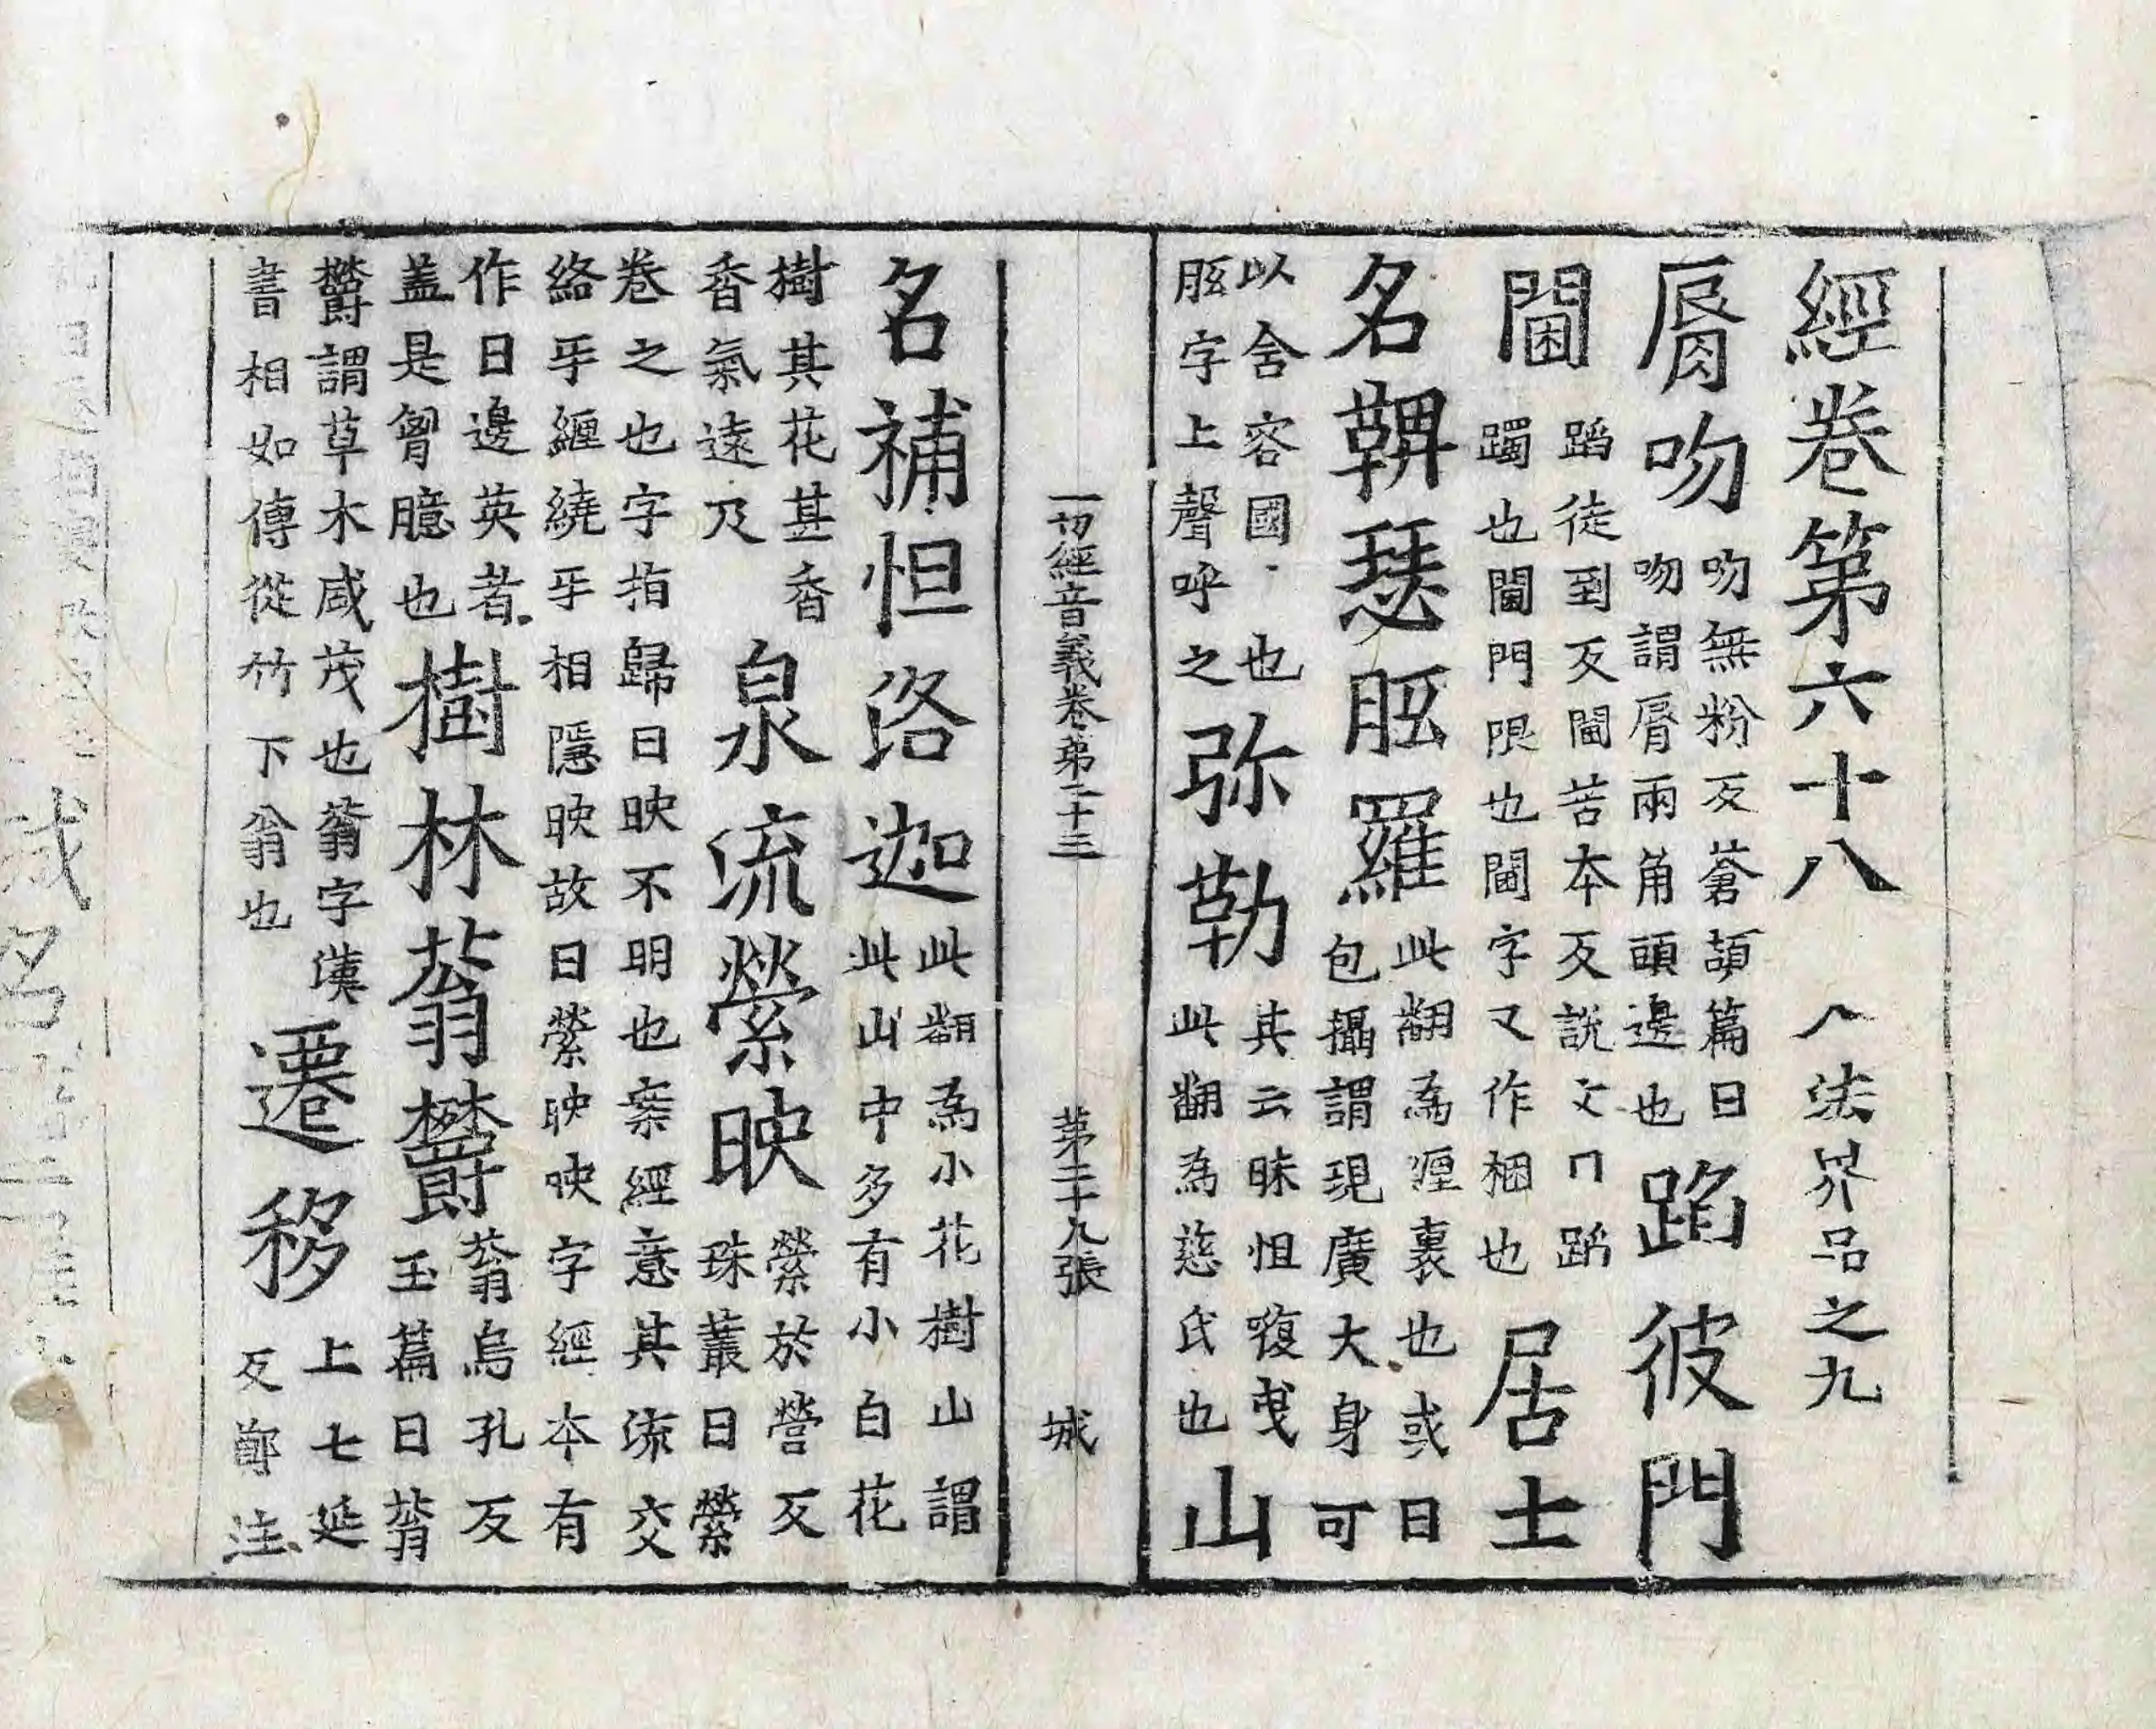 經卷第六十八 入法界品之九
脣吻 吻無粉反蒼頡篇曰
吻謂脣兩角頭邊也 蹈彼門
閫 蹈徒到反閫苦本反說文曰蹈
躅也閫門限也閫字又作梱也 居士
名鞞瑟胝羅 此翻為㕓裏也或曰
包攝謂現廣大身可
以舍容國也
胝字上聲呼之 弥勒 其云昧怛嚘曳
此翻為慈氏也 山
一切經音義卷第二十三 第二十九張 城
名補怛洛迦 此翻為小花樹山謂
此山中多有小白花
樹其花甚香
香氣遠及 泉流縈映 縈於營反
珠叢曰縈
卷之也字指歸曰映不明也案經意其流交
絡乎纏繞乎相隱映故曰縈映映字經本有
作日邊英者
蓋是胷臆也 樹林蓊欝 蓊烏孔反
玉篇曰蓊
欝謂草木咸茂也蓊字漢
書相如傳從竹下翁也 遷移 上七延
反鄭注